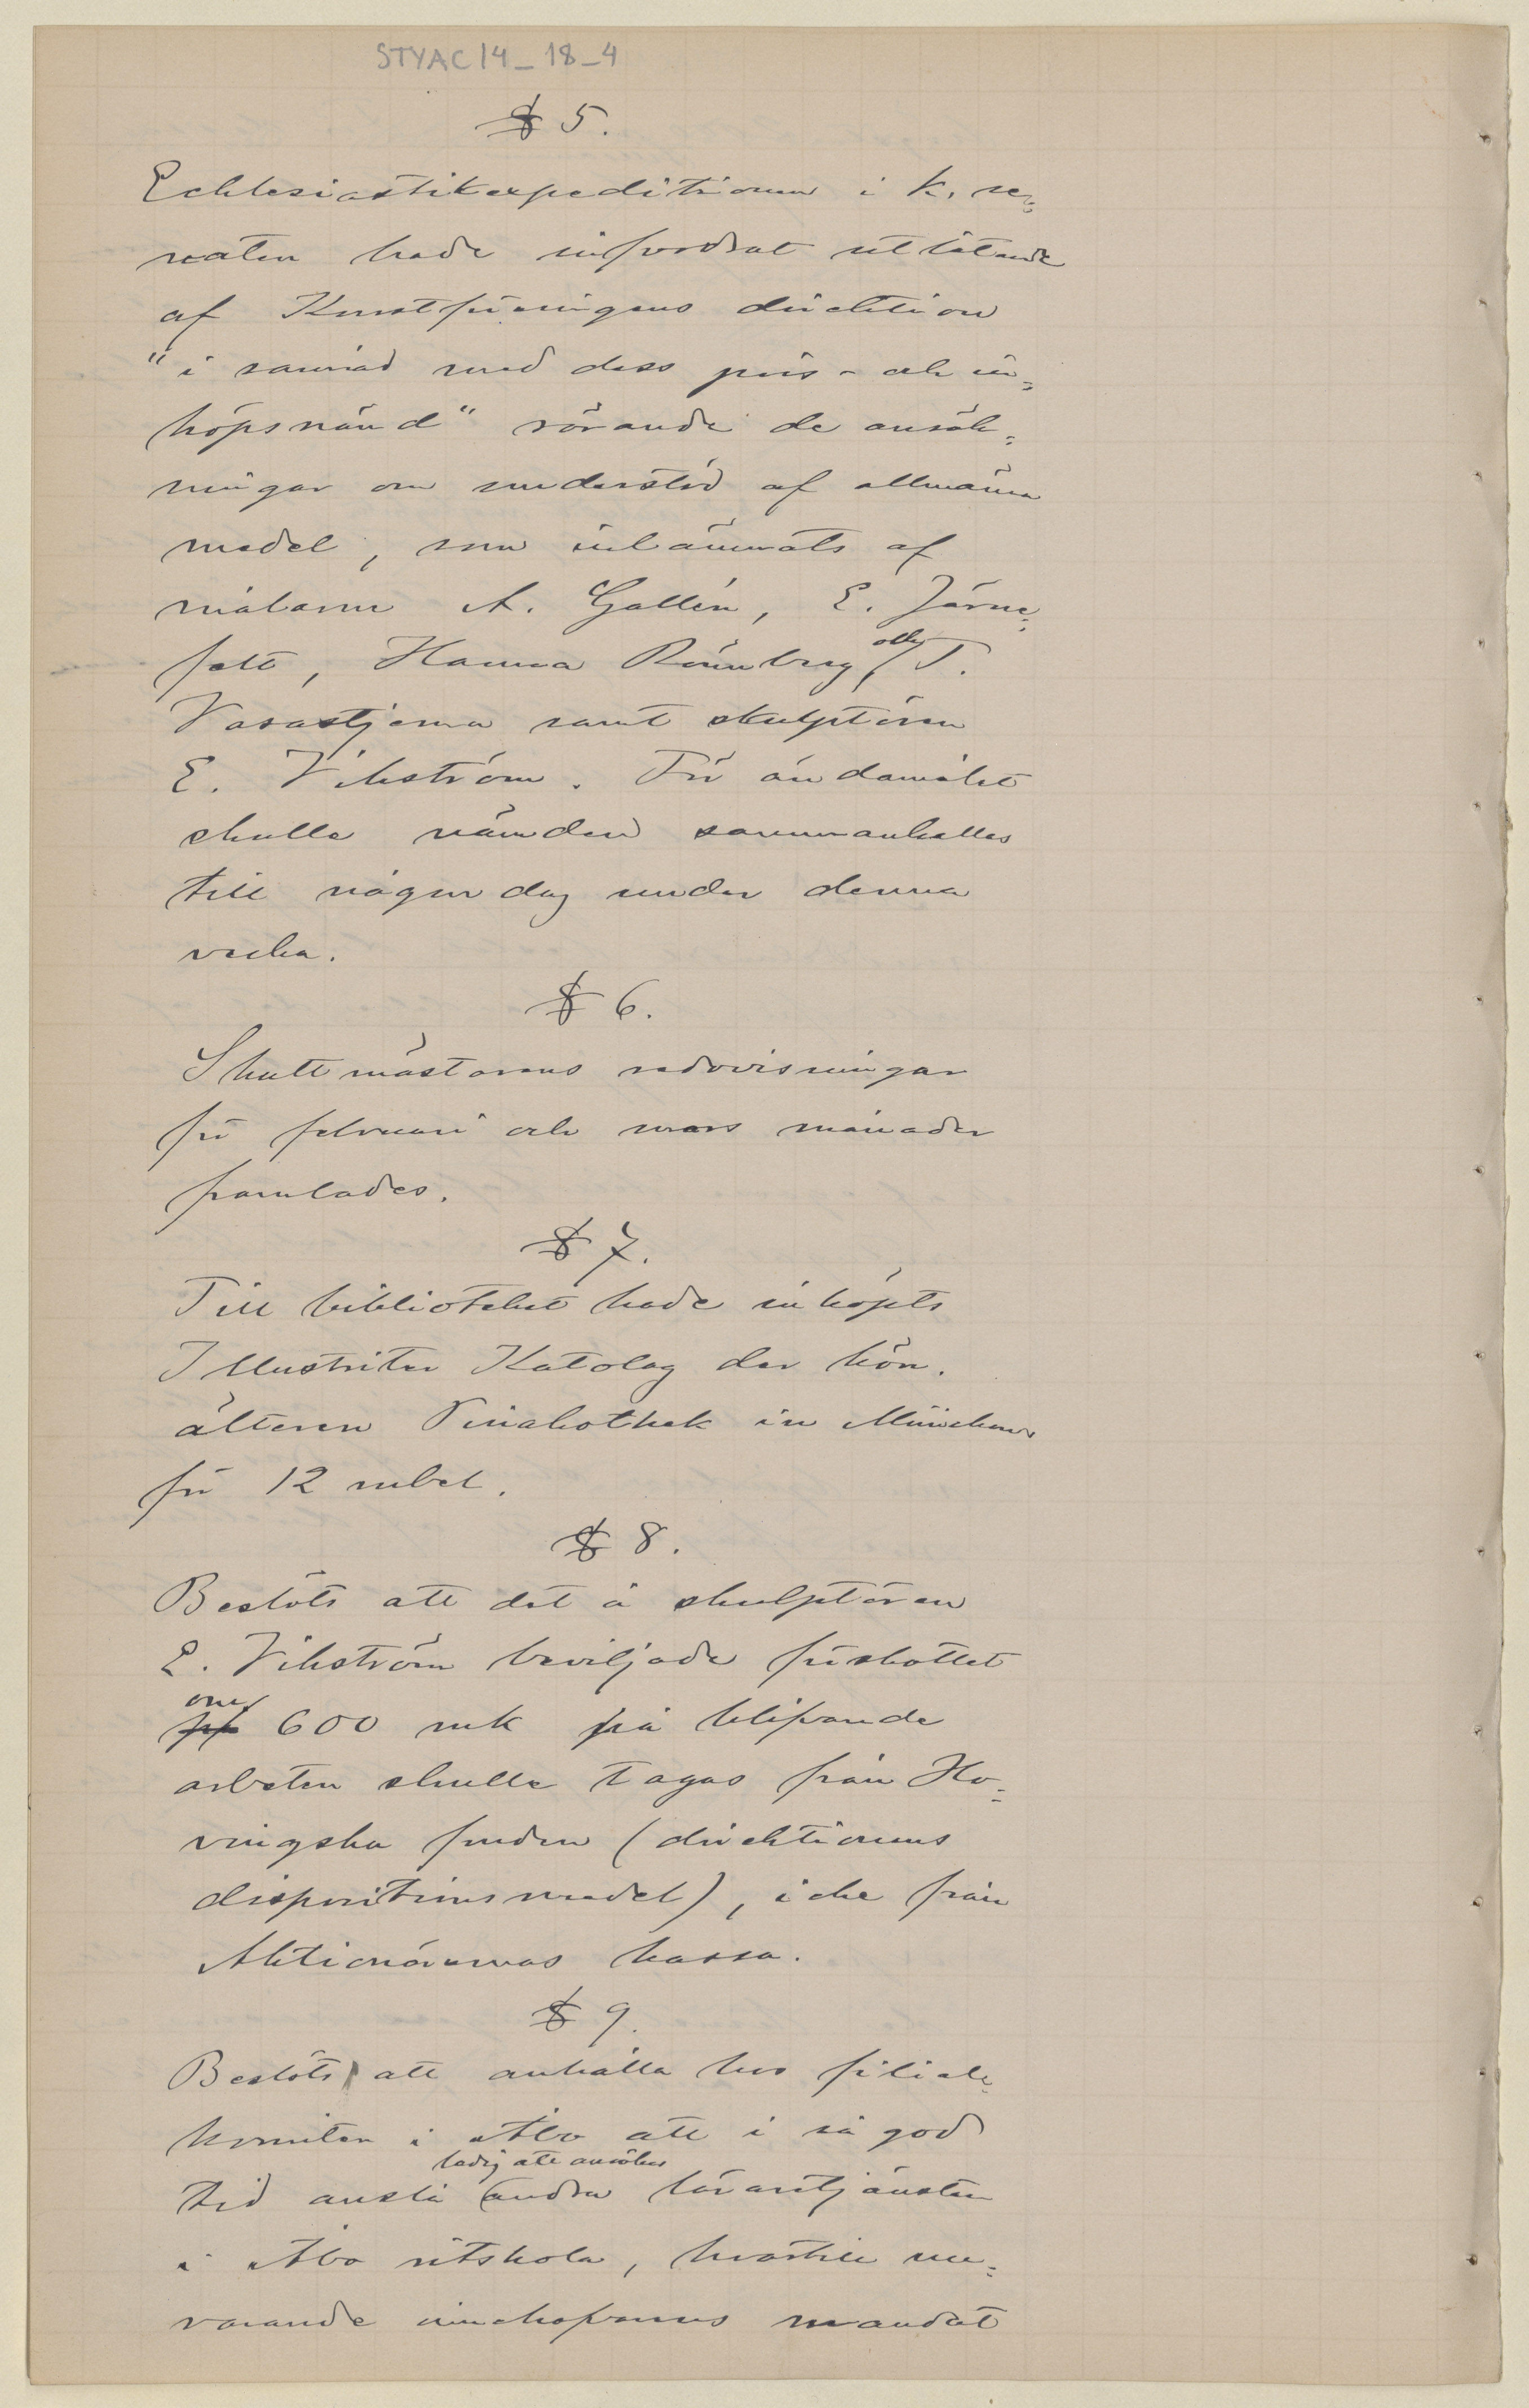 STYAC14_18_4
§ 5.
Ecklesiastikexpeditionen i K. se-
naten hade infordrat utlåtande
af Konstföreningens direktion
"i samråd med dess pris- och in-
köpsnämd" rörande de ansök-
ningar om understöd af allmänna
medel, som inlämnats af
målarne A. Gallén, E. Järne-
felt, Hanna Rönnberg, och T.
Vasastjerna samt skulptören
E. Vikström. För ändamålet
skulle nämden sammankallas
till någon dag under denna
vecka.
§ 6.
Skattmästarens redovisningar
för februari och mars månader
framlades.
§ 7.
Till biblioteket hade inköpts
Illustriter Katolog der kön.
älteren Pinakothek in München
för 12 rubel.
§ 8.
Beslöts att det å skulptören
E. Vikström beviljade förskottet
om 600 mk på blifvande
arbeten skulle tagas från Ho-
vingska fonden (direktionens
dispositionsmedel), icke från
Aktionärernas kassa.
§ 9.
Beslöts att anhålla hos filial-
komitén i Åbo att i så god
ledig att ansökas
tid anslå andra lärartjänsten
i Åbo ritskola, hvartill nu-
varande innehafvarens mandat